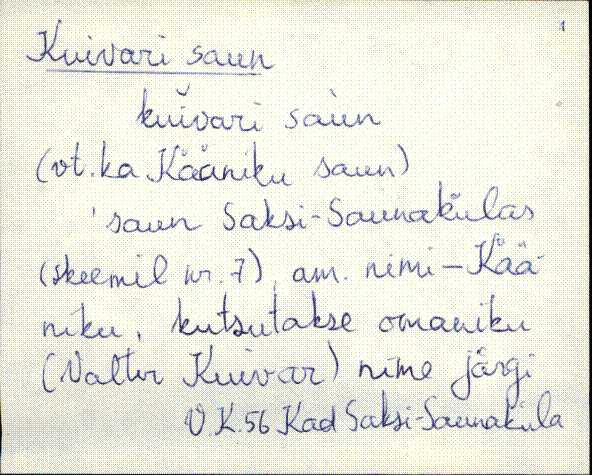 1
Kuivari saun
kŭivari sàun
(vt. ka Kääniku saun)
'saun Saksi-Saunakülas
(skeemil nr. 7), am. nimi – Kää-
niku, kutsutakse omaniku
(Valter Kuivar) nime järgi
V.K. 56 Kad Saksi-Saunaküla